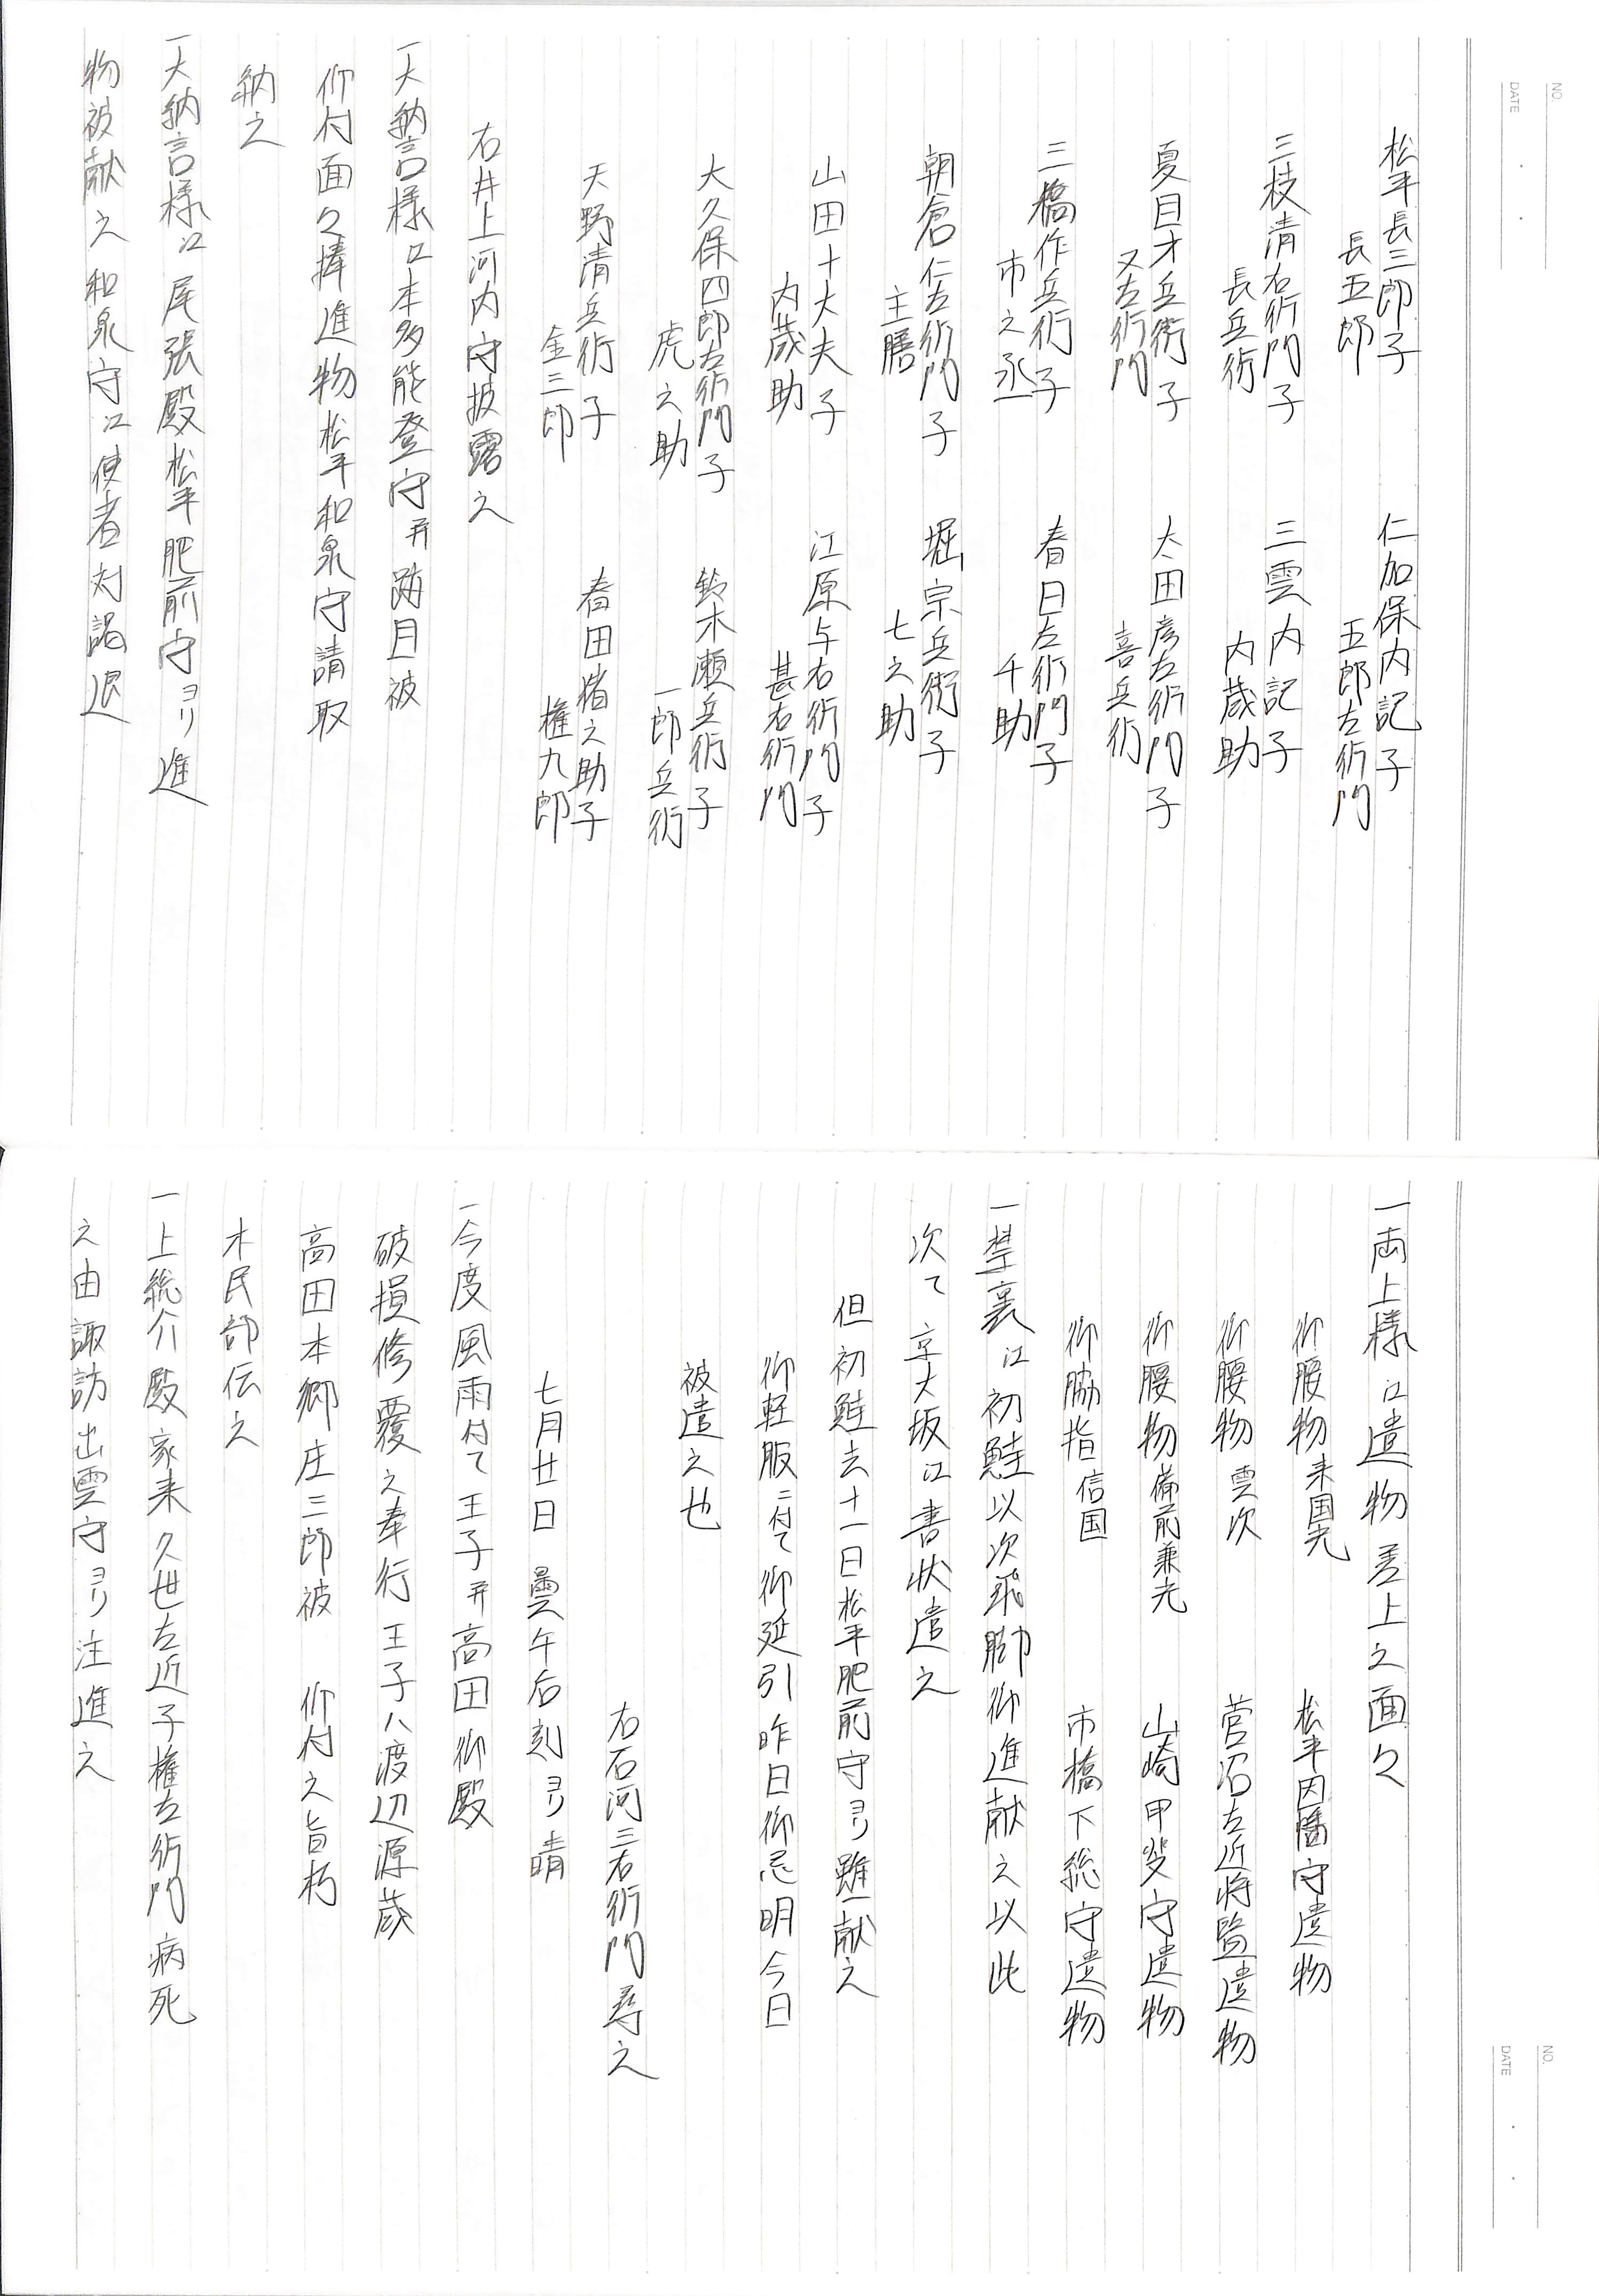 NO.
DATE
松平長三郎子
長五郎
仁加保内記子
五郎左衛門
三枝清右衛門子
長兵衛
三雲内記子
内蔵助
夏目才兵衛子
又左衛門
太田彦左衛門子
喜兵衛
三橋作兵衛子
市之丞
春日左衛門子
千助
朝倉仁左衛門子
主膳
堀宗兵衛子
七之助
山田十大夫子
内蔵助
江原与右衛門子
甚右衛門
大久保四郎左衛門子
虎之助
鈴木瀬兵衛子
一郎兵衛
天野清兵衛子
金三郎
春田猪之助子
権九郎
右井上河内守披露之
一大納言様江本多能登守并跡目被
仰付面々捧進物松平和泉守請取
納之
一大納言様江尾張殿松平肥前守ヨリ進
物被献之和泉守江使者対謁退
NO.
DATE
一両上様江遺物差上之面々
御腰物来国光 松平因幡守遺物
御腰物雲次 菅沼左近将監遺物
御腰物備前兼光 山崎甲斐守遺物
御脇指信国 市橋下総守遺物
一禁裏江初鮭以次飛脚御進献之以此
次て京大坂江書状遣之
但初鮭去十一日松平肥前守ヨリ雖献之
御軽服ニ付て御延引昨日御忌明今日
被遣之也
右石河三右衛門尋之
七月廿日 曇午后刻ヨリ晴
一今度風雨付て王子并高田御殿
破損修覆之奉行王子ハ渡辺源蔵
高田本郷庄三郎被 仰付之旨朽
木民部伝之
一上総介殿家来久世左近子権左衛門病死
之由諏訪出雲守ヨリ注進之